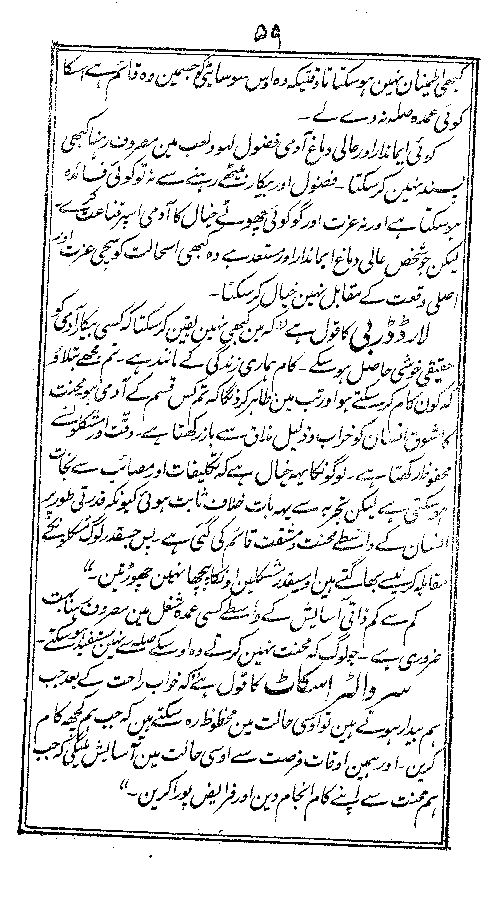 ۵۹
کبھی اطمینان نہین ہوسکتا تاوقتیکہ وہ اوس سوسایٹی کو جسمین وہ قائم ہے اسکا
کوئی عمدہ صلہ نہ دے لے۔
کوئی ایماندار اور عالی دماغ آدمی فضول لہو و لعب مین مصروف رہنا کبھی
پسند نہین کرسکتا۔ فضول اور بیکار بیٹھے رہنے سے نہ تو کوئی فائدہ
ہوسکتا ہے اور نہ عزت اور گو کوئی چھوٹے خیال کا آدمی اسپر قناعت کرے۔
لیکن جو شخص عالی دماغ ایماندار اور مستعد ہے وہ کبھی اسحالت کو سچی عزت اور
اصلی وقعت کے مقابل نہین خیال کرسکتا۔
لارڈ ڈربی کا قول ہے کہ "مین کبھی نہین یقین کرسکتا کہ کسی بیکار آدمی کو
حقیقی خوشی حاصل ہوسکے۔ کام ہماری زندگی کے مانند ہے۔ تم مجھے بتلاؤ
کہ کون کام کرسکتے ہو اور تب مین ظاہر کردونگا کہ تم کس قسم کے آدمی ہو محنت
کا شوق انسان کو خراب و ذلیل مذاق سے باز رکھتا ہے۔ دقت اور مشکلونسے
محفوظ رکھتا ہے۔ لوگونکا یہہ خیال ہے کہ تکلیفات اور مصائب سے نجات
ہوسکتی ہے لیکن تجربہ سے یہہ بات خلاف ثابت ہوئی کیونکہ قدرتی طور پر
انسان کے واسطے محنت و مشقت قائم کی گئی ہے۔ پس جسقدر لوگ مشکلات کے
مقابلہ کرنیسے بھاگتے ہین اوسیقدر مشکلین اونکا پیچھا نہین چھوڑتین۔"
کم سے کم ذاتی آسایش کے واسطے کسی عمدہ شغل مین مصروف رہنا بہت
ضروری ہے۔ جو لوگ کہ محنت نہین کرتے وہ اوسکے صلہ سے نہین مستفید ہوسکتے۔
سر والٹر اسکاٹ کا قول ہے کہ "خواب راحت کے بعد جب
ہم بیدار ہوتے ہین تو اوسی حالت مین محظوظ رہ سکتے ہین کہ جب ہم کچھہ کام
کرین۔ اور ہمین اوقات فرصت سے اوسی حالت مین آسایش ملیگی کہ جب
ہم محنت سے اپنے کام انجام دین اور فرایض پورا کرین۔"